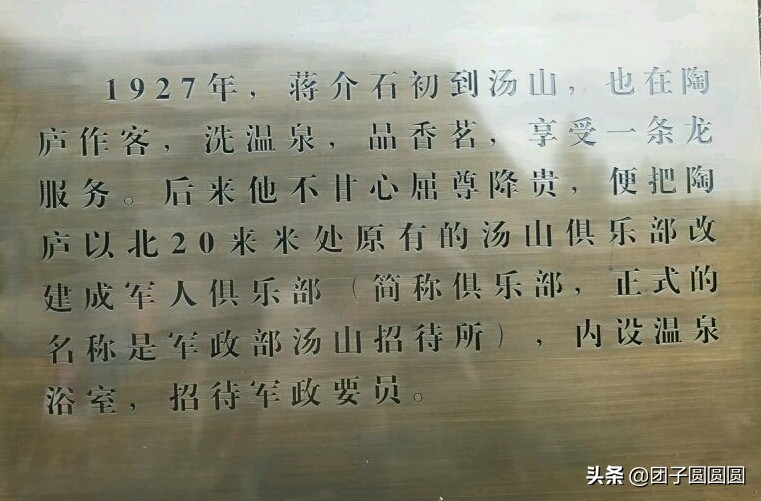 1927年，蒋介石初到汤山，也在陶
庐作客，洗温泉，品香茗，享受一条龙
服务。后来他不甘心屈尊降贵，便把陶
庐以北20来米处原有的汤山俱乐部改
建成军人俱乐部（简称俱乐部，正式的
名称是军政部汤山招待所），内设温泉
浴室，招待军政要员。
头条 @团子圆圆圆